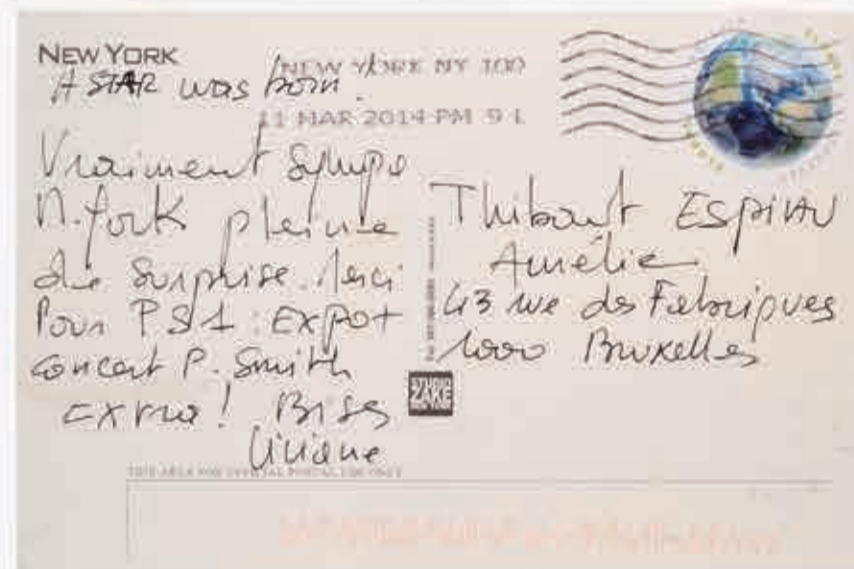 NEW YORK
A STAR was born.
NEW YORK NY 100
11 MAR 2014 PM 9 L
Vraiment sympa
N. York pleine
de surprise. Merci
Pour PS1 : Expo +
concert P. Smith
Extra! Bises
Liliane
Thibaut ESPIAU
Amélie
43 rue des Fabriques
1000 Bruxelles
STUDIO
ZAKE
NEW YORK
THIS AREA FOR OFFICIAL POSTAL USE ONLY